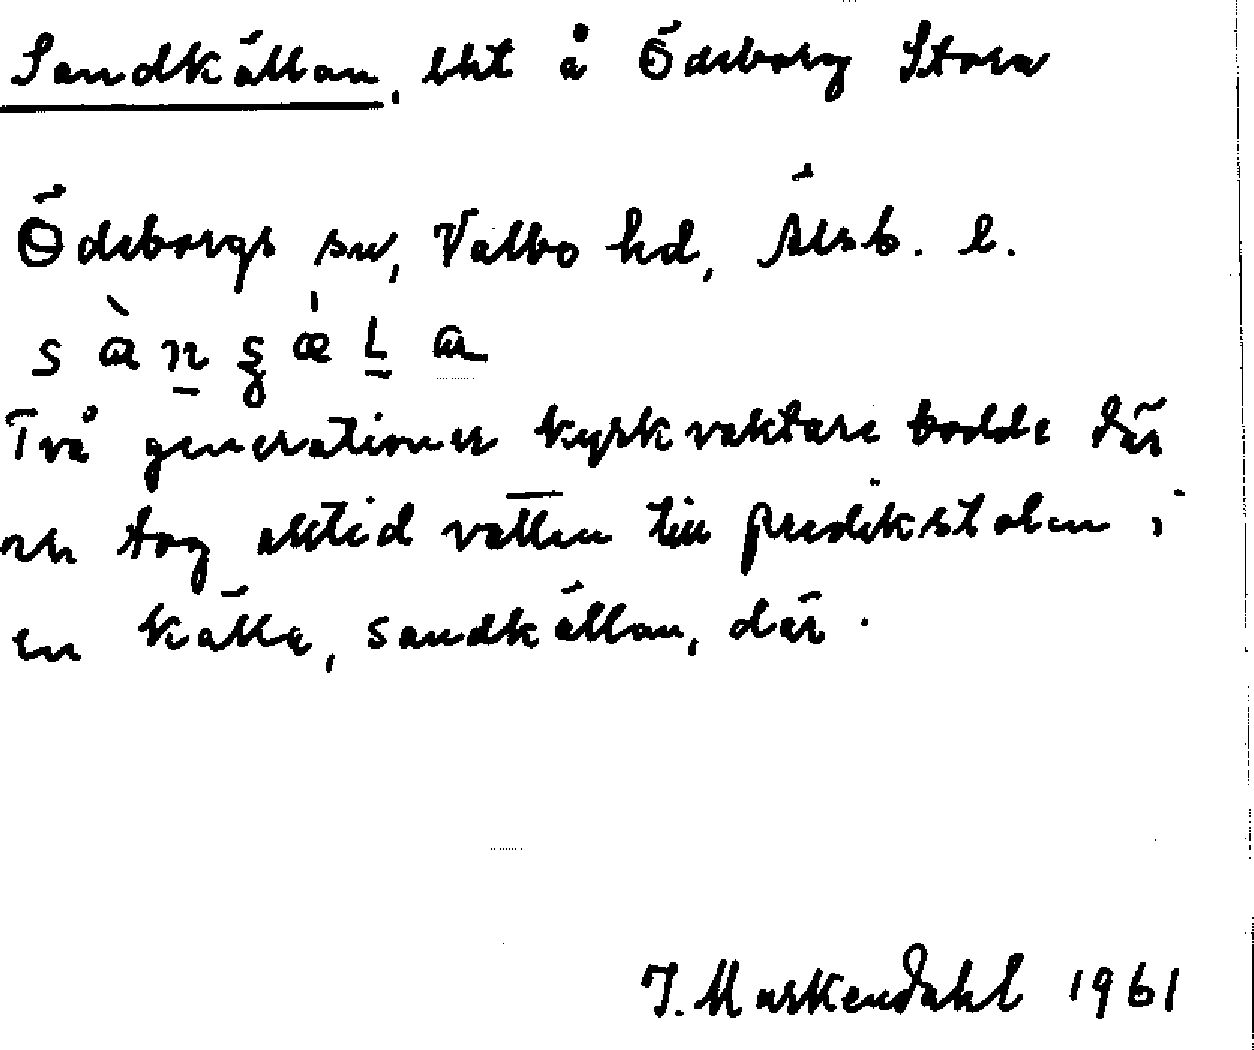 Sandkällan, lht å Ödeborg Stora
Ödeborgs sn, Valbo hd, Älvsb. l.
Två generationer kyrkvaktare bodde där
och tog alltid vatten till predikstolen i
en källa, sandkällan, där.
J. Markendahl 1961